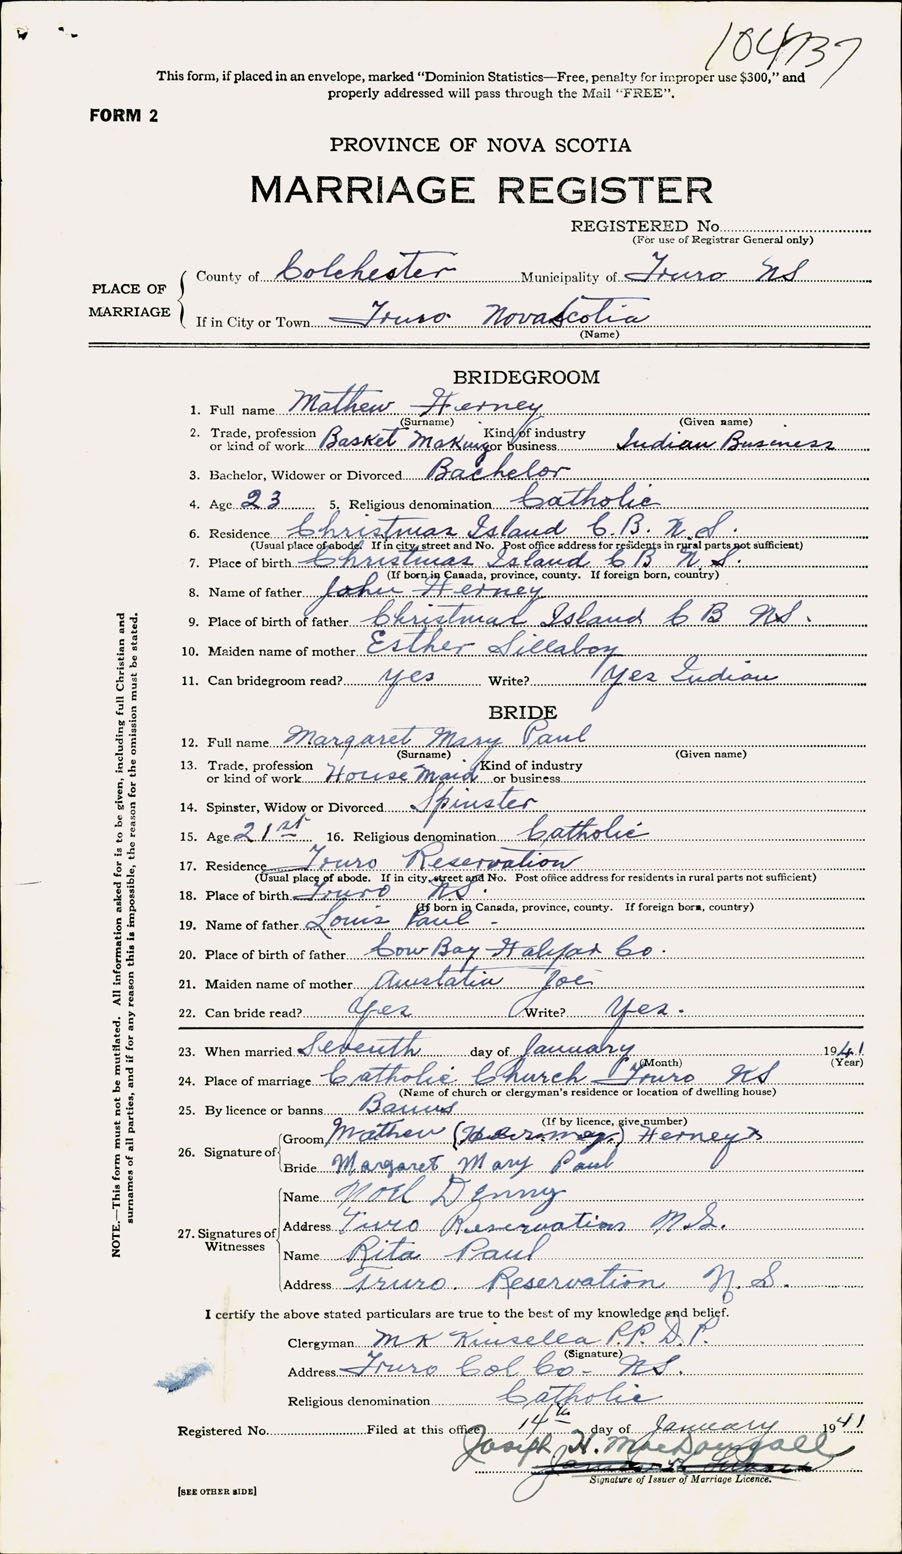 104737
This form, if placed in an envelope, marked "Dominion Statistics—Free, penalty for improper use $300," and
properly addressed will pass through the Mail "FREE".
FORM 2
PROVINCE OF NOVA SCOTIA
MARRIAGE REGISTER
REGISTERED No.
(For use of Registrar General only)
PLACE OF MARRIAGE
County of Colchester Municipality of Truro NS
If in City or Town Truro Nova Scotia
(Name)
BRIDEGROOM
1. Full name Mathew Herney
(Surname) (Given name)
2. Trade, profession or kind of work Basket Making Kind of industry or business Indian Business
3. Bachelor, Widower or Divorced Bachelor
4. Age 23 5. Religious denomination Catholic
6. Residence Christmas Island C.B. N.S.
(Usual place of abode. If in city, street and No. Post office address for residents in rural parts not sufficient)
7. Place of birth Christmas Island CB N.S.
(If born in Canada, province, county. If foreign born, country)
8. Name of father John Herney
9. Place of birth of father Christmas Island C B NS.
10. Maiden name of mother Esther Sillaboy
11. Can bridegroom read? yes Write? Yes Indian
BRIDE
12. Full name Margaret Mary Paul
(Surname) (Given name)
13. Trade, profession or kind of work House Maid Kind of industry or business
14. Spinster, Widow or Divorced Spinster
15. Age 21st 16. Religious denomination Catholic
17. Residence Truro Reservation
(Usual place of abode. If in city, street and No. Post office address for residents in rural parts not sufficient)
18. Place of birth Truro N.S.
(If born in Canada, province, county. If foreign born, country)
19. Name of father Louis Paul -
20. Place of birth of father Cow Bay Halifax Co.
21. Maiden name of mother Anstatia Joe
22. Can bride read? Yes Write? Yes.
23. When married Seventh day of January 1941
(Month) (Year)
24. Place of marriage Catholic Church Truro NS
(Name of church or clergyman's residence or location of dwelling house)
25. By licence or banns Banns
(If by licence, give number)
26. Signature of
Groom Mathew Herney x
Bride Margaret Mary Paul
27. Signatures of Witnesses
Name Noel Denny
Address Turo Reservation N.S.
Name Rita Paul
Address Truro. Reservation N.S.
I certify the above stated particulars are true to the best of my knowledge and belief.
Clergyman M K Kinsella P.P. D.P.
(Signature)
Address Truro Col Co - NS.
Religious denomination Catholic
Registered No. Filed at this office 14th day of January 1941
Joseph H. MacDougall
Signature of Issuer of Marriage Licence.
[SEE OTHER SIDE]
NOTE.—This form must not be mutilated. All information asked for is to be given, including full Christian and
surnames of all parties, and if for any reason this is impossible, the reason for the omission must be stated.